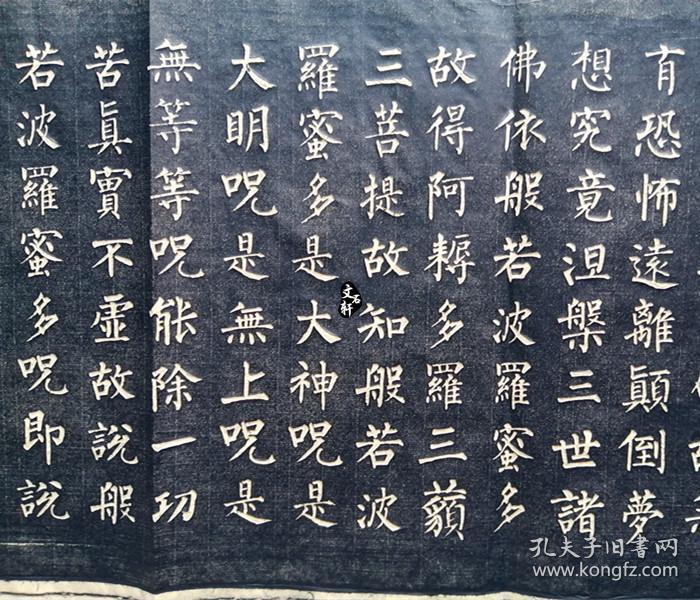 有恐怖遠離顚倒夢
想究竟涅槃三世諸
佛依般若波羅蜜多
故得阿耨多羅三藐
三菩提故知般若波
羅蜜多是大神呪是
大明呪是無上呪是
無等等呪能除一切
苦眞實不虛故說般
若波羅蜜多呪即說
文石軒
孔夫子旧书网
www.kongfz.com